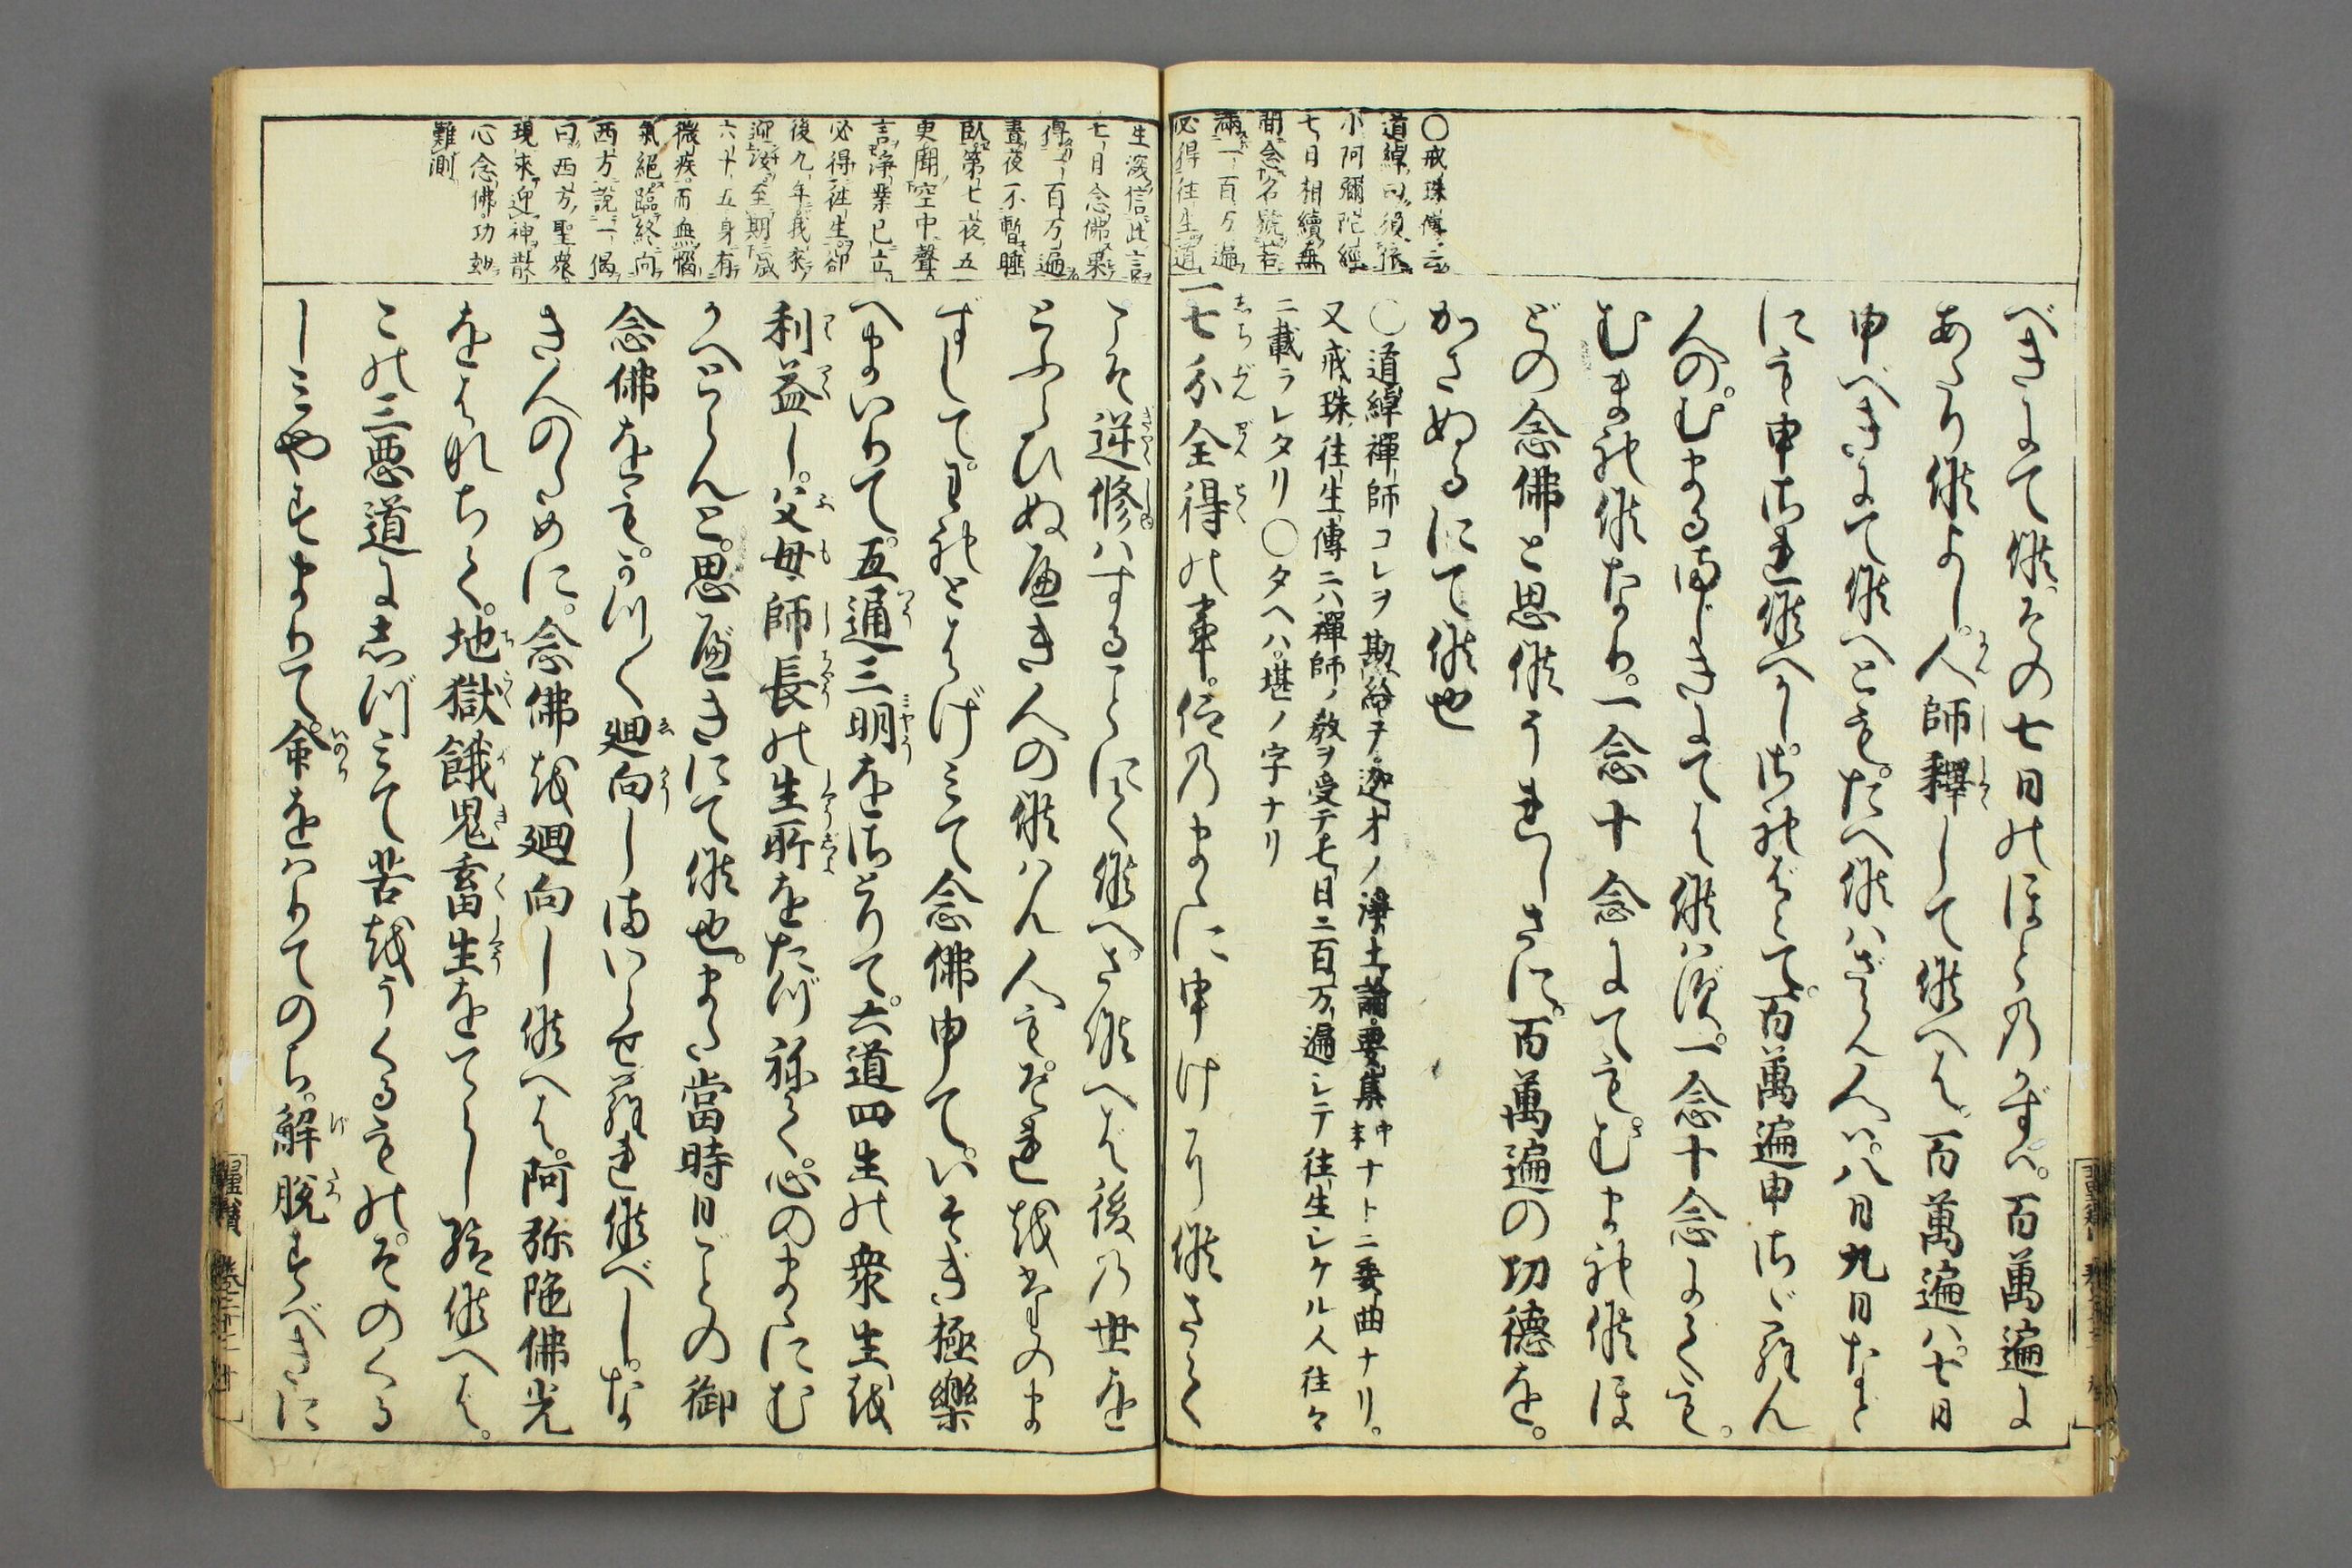 べきにて候。その七日のほどのかずへ。百萬遍に
あたり候よし。人師釋して候へば。百萬遍ハ七日
申べきにて候へども。たへ候ハざらん人ハ。八日九日など
にも申され候へかし。さればとて。百萬遍申さゞらん
人の。むまるまじきにてハ候ハず。一念十念にても。
むまれ候なり。一念十念にても。むまれ候ほ
どの念佛と思候うれしさに。百萬遍の功德を。
かさぬるにて候也
○道綽禪師コレヲ勘給ヲ。迦才ノ淨土論。要集中末ナトニ委曲ナリ。
又戒珠往生傳ニハ禪師ノ敎ヲ受テ七日ニ百万遍シテ往生シケル人往々
ニ載ラレタリ○タヘハ。堪ノ字ナリ
一七分全得の事。仰のまゝに申けに候。さてく
○戒珠傳云
道綽曰須依
小阿彌陀經
七日相續無
間念名號若
滿一百万遍
必得往生道
生深信此言
七日念佛果
得一百万遍
晝夜不暫睡
臥第七夜五
更聞空中聲
言淨業已立
必得往生卻
後九年我來
迎汝至期歳
六十五身有
微疾而無惱
氣絕臨終向
西方說一偈
曰西方聖衆
現來迎神散
心念佛功効
難測
こそ逆修ハすることにて候へ。さ候へば後の世を
とふらひぬべき人の候ハん人も。それをたのま
ずして。われとはげみて念佛申て。いそぎ極樂
へまいりて。五通三明をさとりて。六道四生の衆生を
利益し。父母師長の生所をたづねて。心のまゝにむ
かへとらんと。思べきにて候也。また當時日ごとの御
念佛をも。かつ〳〵廻向しまいらせられ候べし。な
き人のために。念佛を廻向し候へば。阿弥陀佛光
をはなちて。地獄餓鬼畜生をてらし給候へば。
この三惡道にしづみて苦をうくるもの。そのくる
しみやすまりて。命をハりてのち。解脫すべきに